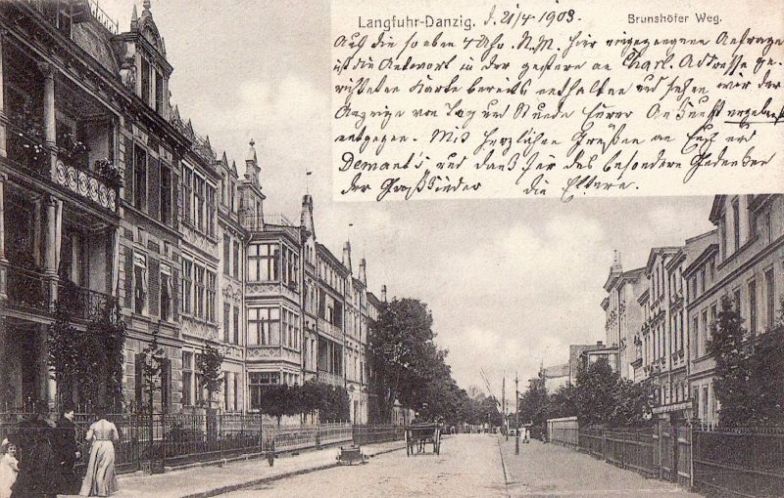 Langfuhr-Danzig. d. 21/4 1903. Brunshöfer Weg.
Auf die so eben 4 Uhr N.M. hier eingegangene Anfrage
ist die Antwort in der gestern an Charl. Adresse ge-
richteten Karte bereits enthalten und sehen wir der
Anzeige von Tag und Stunde Eurer Ankunft
entgegen. Mit herzlichen Grüßen an Euch und
Demant's und Dank für das besondere Gedenken
der Großkinder die Eltern.